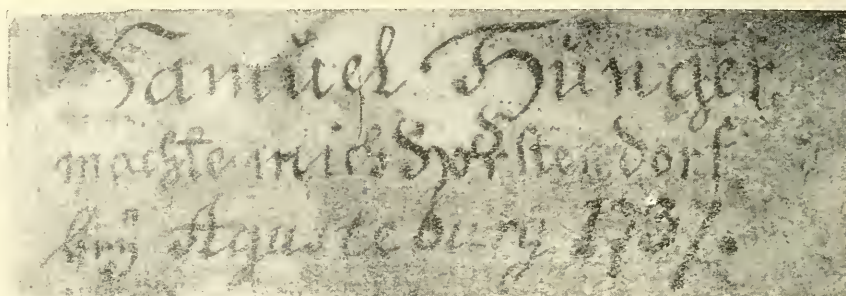 Samuel Hünger
machte mich Porstendorf
beÿ Agusteburg